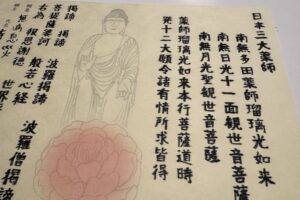 日本三大薬師
南無多田薬師瑠璃光如来
南無日光十一面観世音菩薩
南無月光聖観世音菩薩
薬師瑠璃光如来本行菩薩道時
発十二大願令諸有情所求皆得
揭諦 揭諦 波羅揭諦 波羅僧揭諦
菩提薩婆訶 般若心経
右為 報恩謝徳 世界